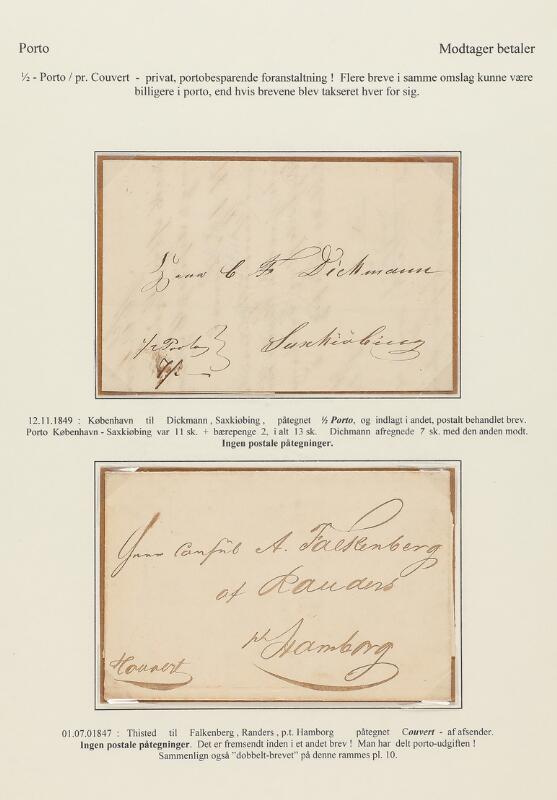 Porto
Modtager betaler
½ - Porto / pr. Couvert - privat, portobesparende foranstaltning ! Flere breve i samme omslag kunne være
billigere i porto, end hvis brevene blev takseret hver for sig.
Herr C F Dickmann
½ Porto
Saxkiöbing
12.11.1849 : København til Dickmann , Saxkiøbing , påtegnet ½ Porto, og indlagt i andet, postalt behandlet brev.
Porto København - Saxkiøbing var 11 sk. + bærepenge 2, i alt 13 sk. Dichmann afregnede 7 sk. med den anden modt.
Ingen postale påtegninger.
Herr Consül A. Falkenberg
af Randers
pt Hamborg
Couvert
01.07.01847 : Thisted til Falkenberg , Randers , p.t. Hamborg påtegnet Couvert - af afsender.
Ingen postale påtegninger. Det er fremsendt inden i et andet brev ! Man har delt porto-udgiften !
Sammenlign også "dobbelt-brevet" på denne rammes pl. 10.